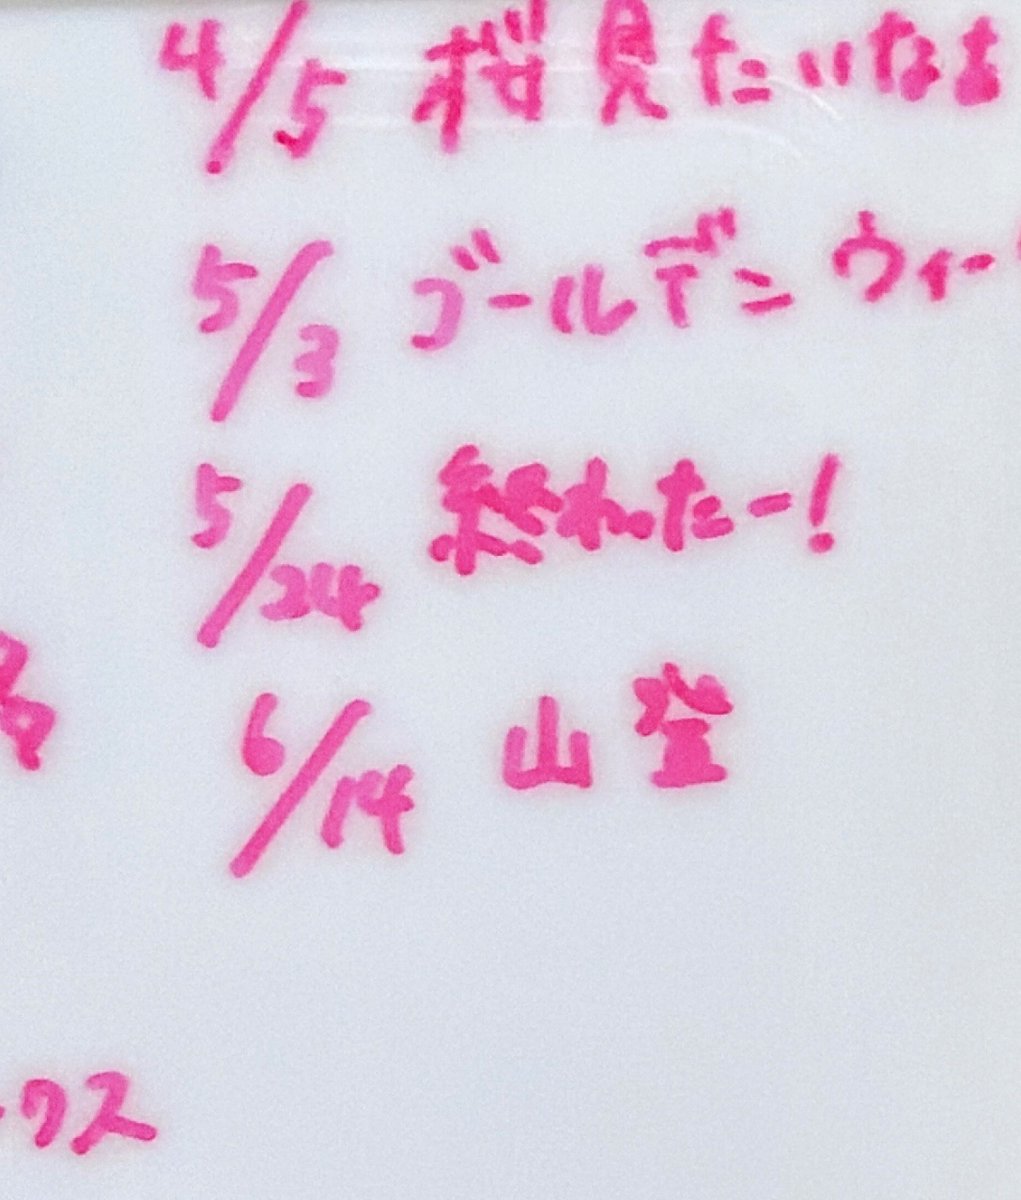 4/5 桜見たいなぁ
5/3 ゴールデンウィー
5/24 終わったー!
6/14 山登
クス